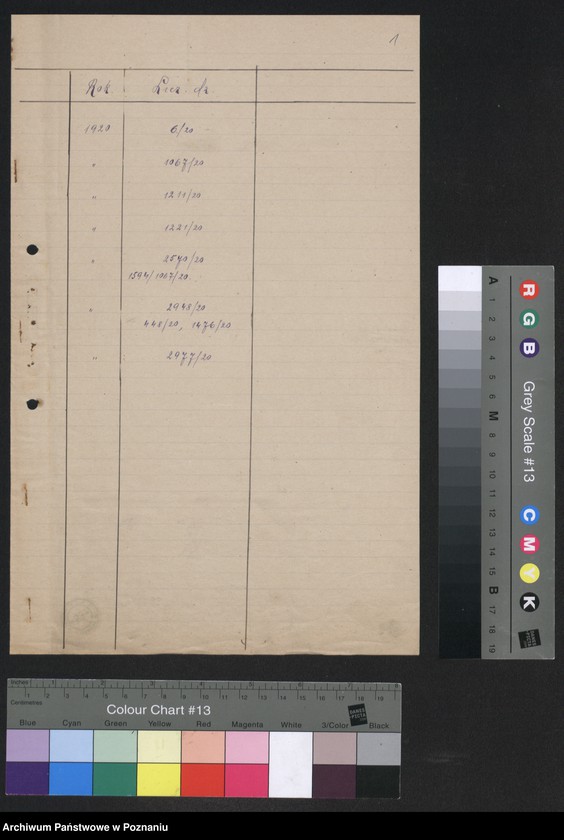 1
Rok
1920 6/20
" 1067/20
" 1211/20
" 1221/20
" 2540/20
1594/1067/20
" 2948/20
448/20, 1476/20
" 2977/20
A 1 2 3 4 5 6 M 8 9 10 11 12 13 14 15 B 17 18 19
R G B Grey Scale #13 C M Y K
Inches 1 2 3 4 5 6 7 8
1 2 3 4 5 6 7 8 9 10 11 12 13 14 15 16 17 18 19
Centimetres
Colour Chart #13
Blue Cyan Green Yellow Red Magenta White 3/Color Black
Archiwum Państwowe w Poznaniu